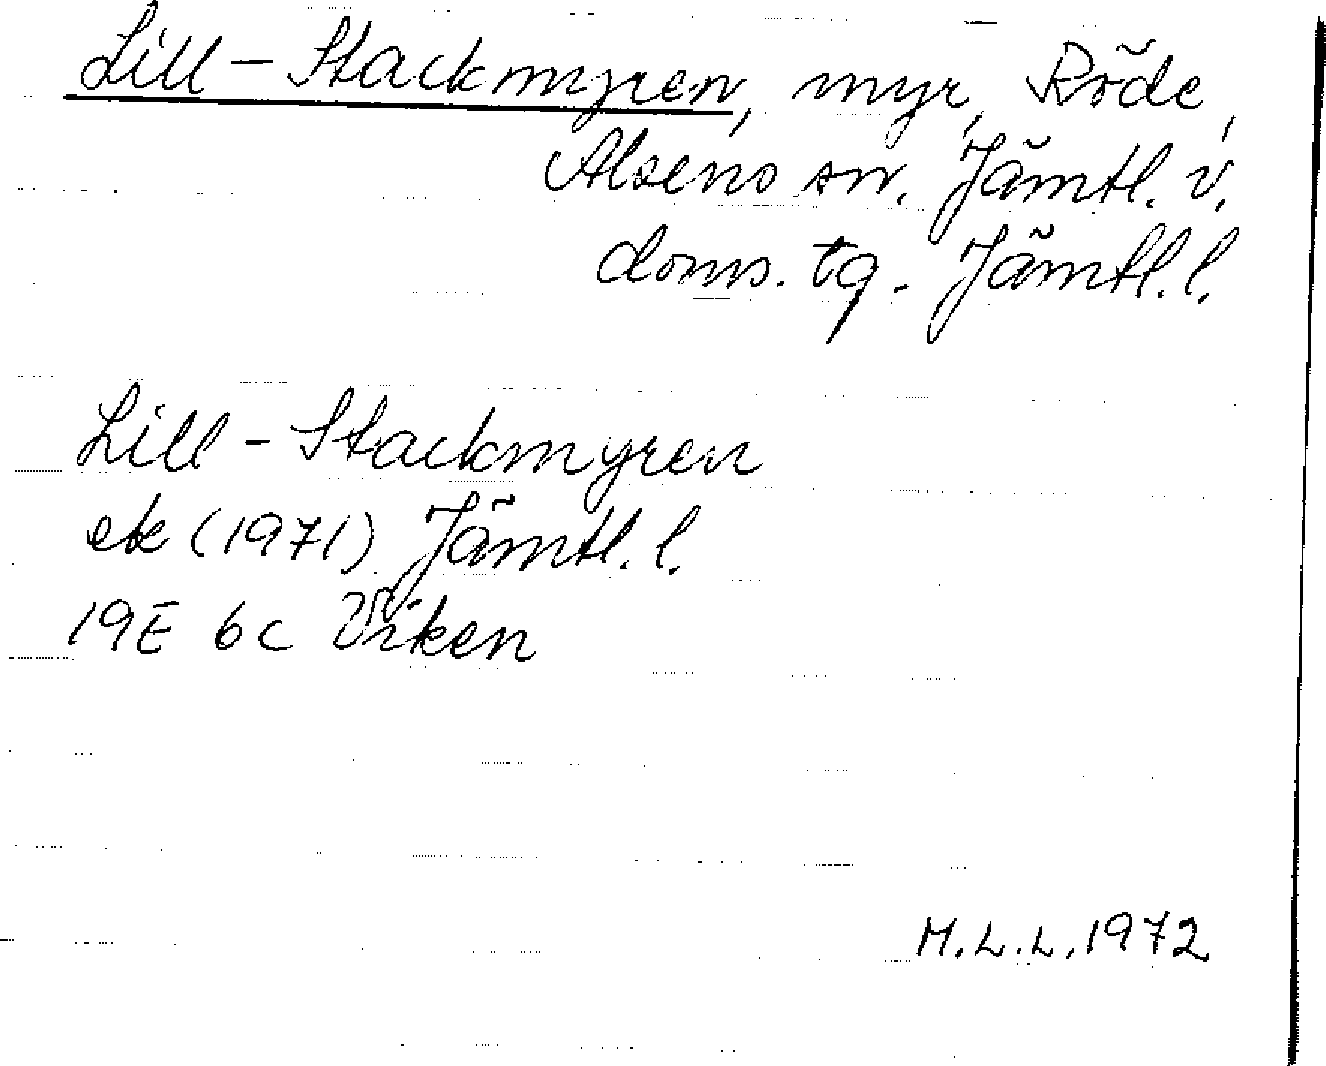 Lill-Stackmyren, myr, Röde,
Alsens sn. Jämtl. v.
doms. tg. Jämtl. l.
Lill-Stackmyren
ek (1971) Jämtl. l.
19E 6c Viken
M.L.L. 1972